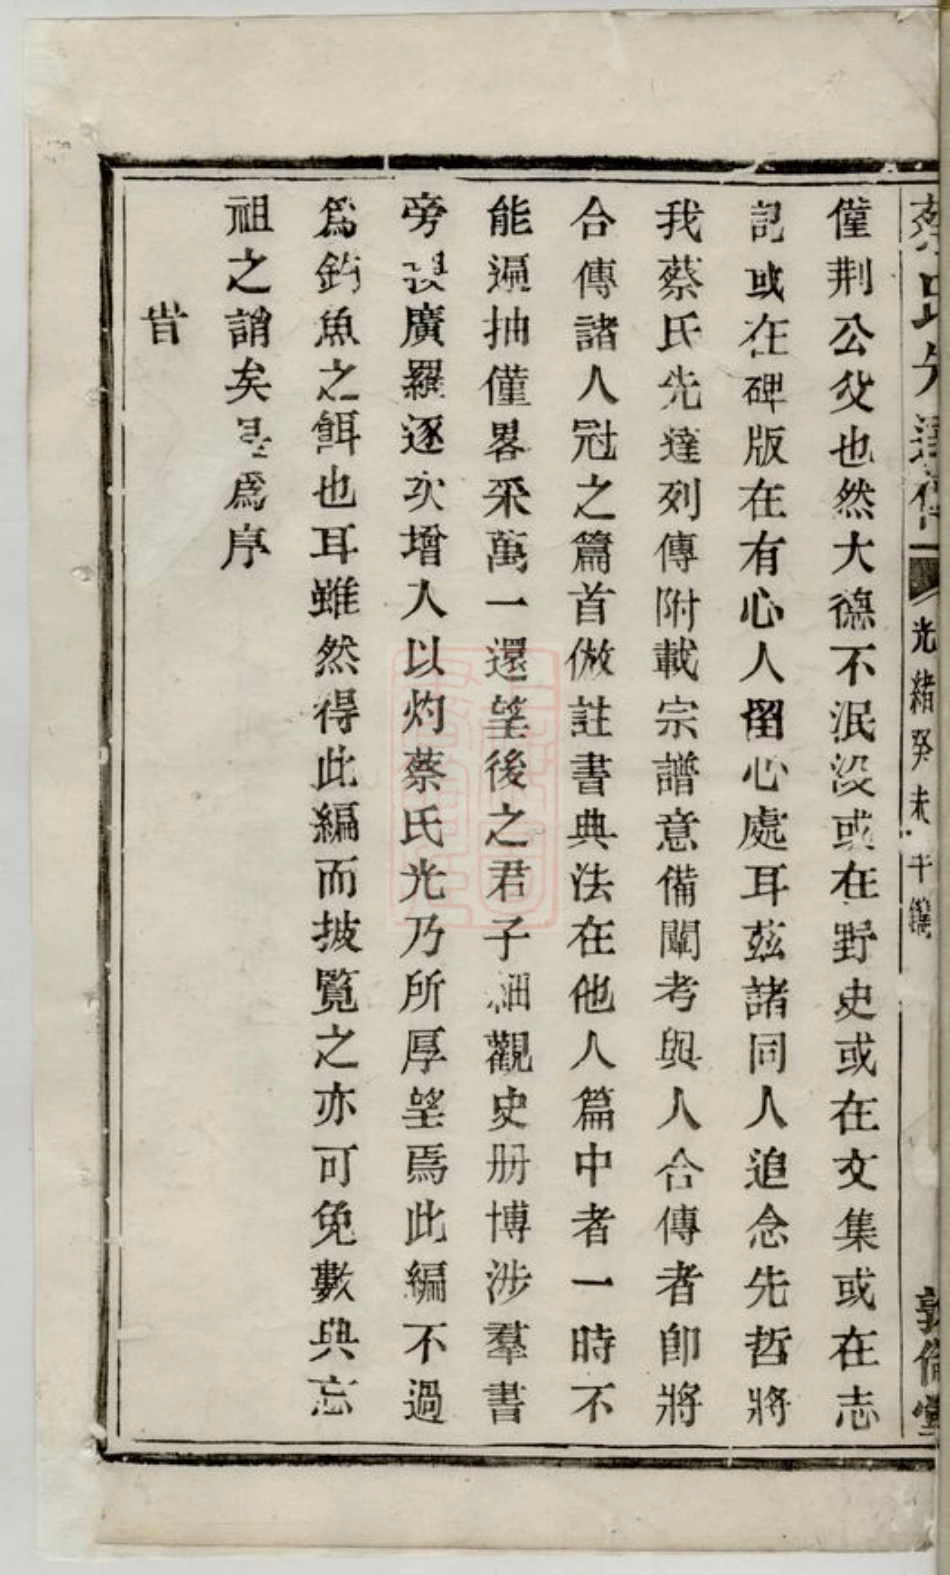 蔡氏先達傳
光緒癸未年鐫
敦倫堂
僅荆公父也然大德不泯没或在野史或在文集或在志
記或在碑版在有心人留心處耳兹諸同人追念先哲將
我蔡氏先達列傳附載宗譜意備闡考與人合傳者卽將
合傳諸人冠之篇首倣註書典法在他人篇中者一時不
能遍抽僅畧采萬一還望後之君子細觀史册博涉羣書
旁搜廣羅逐次增入以灼蔡氏光乃所厚望焉此編不過
爲釣魚之餌也耳雖然得此編而披覽之亦可免數典忘
祖之誚矣是爲序
旹